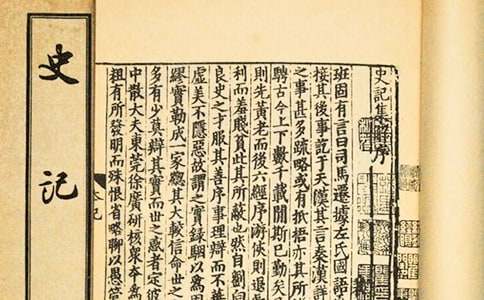 史記集解序
班固有言曰司馬遷據左氏國語
接其後事訖于天漢其言秦漢詳
之事甚多疏略或有抵梧亦其所
騁古今上下數千載閒斯已勤矣
則先黃老而後六經序游俠則退處
利而羞賤貧此其所蔽也然自劉向
良史之才服其善序事理辯而不華
虛美不隱惡故謂之實錄駰以爲固
繆實勒成一家緫其大較信命世之
多有少莫辯其實而世之惑者定彼
中散大夫東莞徐廣研核衆本爲
粗有所發明而殊恨省略聊以愚管
史記